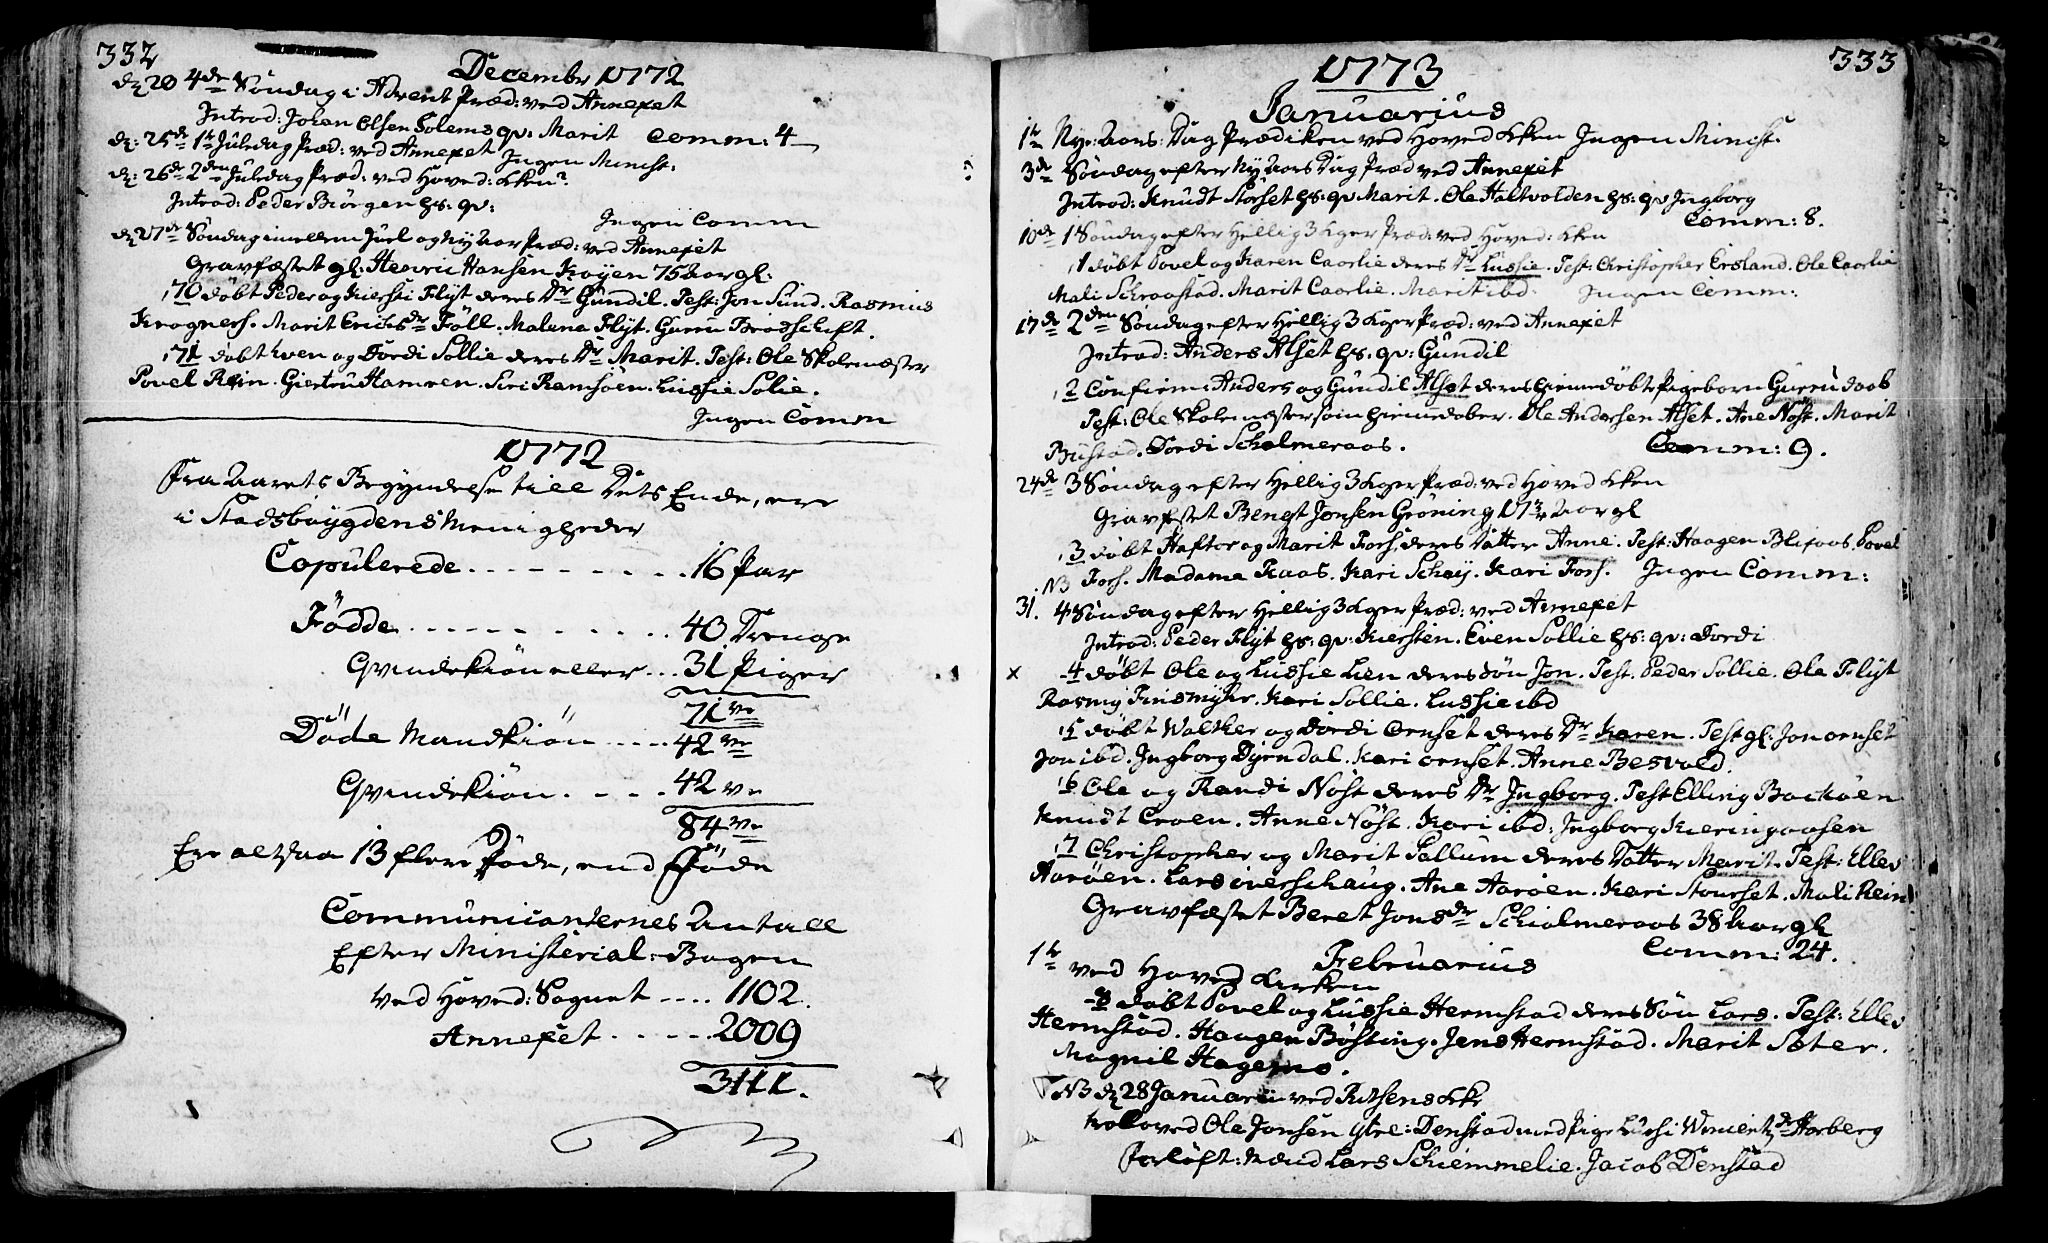 332
December 1772
d: 20 4de Söndag i Advent Præd: ved Annexet
Introd: Johan Olsen Solems qv: Marit Comm: 4
d: 25de 1te Juledag Præd: ved Annexet Ingen Minist:
d: 26de 2den Juledag Præd: ved Hoved: Kken
Introd: Peder Biörgen hs: qv:
Ingen Comm
d: 27de Söndag imellem Juel og Ny Aar Præd: ved Annexet
Gravfæstet gl: Henric Hansen Koyen 75 Aar gl:
,70 döbt Peder og Kiersti Flyt deres Dr Gundil. Test: Jon Sund. Rasmus
Krognes. Marit Erichsdr Föll. Malena Flyt. Guru Brodschift.
,71 döbt Even og Dordi Sollie deres Dr Marit. Test: Ole Skolemæster
Povel Rein. Giertru Hamren. Siri Ramsöen. Lussie Solie.
Ingen Comm
1772
Fra Aarets Begyndelse till Dets Ende, ere
i Stadsböygdens Menigheder
Copulerede . . . . . . . . . 16 Par
Födde . . . . . . . . . . 40 Drenge
Qvindekiön eller . . . 31 Piger
71 ve
Döde Mandkiön . . . . . 42 ve
Qvindekiön . . . . 42 ve
84 ve
Ere altsaa 13 flere Döde, end Föde
Communicanternes Antall
Efter Ministerial-Bogen
ved Hoved: Sognet . . . . 1102.
Annexet . . . . . . 2009
3111.
333
1773
Januarius
1te Nye: Aars: Dag Prædiken ved Hoved Kken Ingen Minist:
3de Söndag efter Ny Aars Dag Præd ved Annexet
Introd: Knudt Storset hs: qv Marit. Ole Haltvolden hs: qv Ingborg
Comm: 8.
10de 1 Söndag efter Hellig 3 Kger Præd: ved Hoved: Kken
,1 döbt Povel og Karen Caarlie deres Dr Lussie. Test: Christopher Ersland. Ole Caarlie
Mali Schraastad. Marit Caarlie. Marit ibd. Ingen Comm:
17de 2den Söndag efter Hellig 3 Kger Præd: ved Annexet
Introd: Anders Alset hs: qv: Gundil
,2 Confirm: Anders og Gundil Alset deres hiemmedöbte Pigeborn Guru daab
Test: Ole Skolemæster som hiemmedöber. Ole Andersen Alset. Ane Nöst. Marit
Bustad. Dordi Scholmeraas. Comm: 9.
24de 3 Söndag efter Hellig 3 Kger Præd: ved Hoved Kken
Gravfæstet Bengt Jonsen Gröning 17 Aar gl
,3 döbt Haftor og Marit Fors, deres Datter Anne. Test: Haagen Blixaas. Povel
Fors. Madame Raas. Kari Schey. Kari Fors. Ingen Comm:
NB
31. 4 Söndag efter Hellig 3 Kger Præd: ved Annexet
Introd: Peder Flyt hs: qv: Kiersten. Even Sollie hs: qv: Dordi
x ,4 döbt Ole og Lussie Lien deres Sön Jon. Test. Peder Sollie. Ole Flyt
Rasmus Finsmyhr. Kari Sollie. Lussie ibd
,5 döbt Walther og Dordi Ornset deres Dr Karen. Test gl: Jon Ornset
Jon ibd. Ingborg Dyrendal. Kari Ornset. Anne Besvold.
,6 Ole og Randi Nöst deres Dr Ingborg. Test Elling Backöen
Knudt Croen. Anne Nöst. Kari ibd: Ingborg Kieringaasen
,7 Christopher og Marit Sallum deres Datter Marit. Test: Elles
Aaröen. Lars Overschaug. Ane Aaröen. Kari Stourset. Mali Rein
Gravfæstet Beret Jonsdr Schiolmeraas 38 Aar gl
Comm: 24.
Februarius
1te ved Hoved Kirken
,8 döbt Povel og Lussie Hermstad deres Sön Lars. Test: Elles
Hermstad. Haagen Bösting. Jens Hermstad. Marit Sæter.
Magnil Hagemo.
NB d: 28 Januarii ved Ritsens Kke
troloved Ole Jonsen Ytre: Denstad med Pige Lussi Wincentzdr Harberg
Forlöft: Mænd Lars Schiemmelie. Jacob Denstad